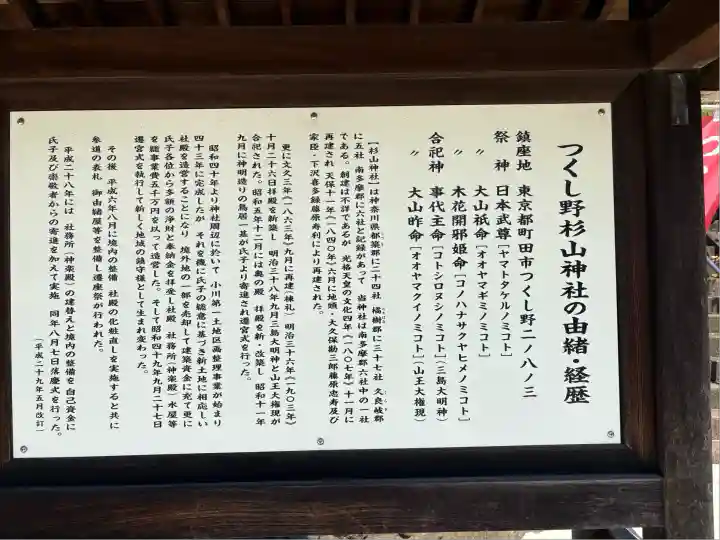 つくし野杉山神社の由緒・経歴
鎮座地 東京都町田市つくし野二ノ八ノ三
祭神 日本武尊[ヤマトタケルノミコト]
〃 大山祇命[オオヤマギミノミコト]
〃 木花開邪姫命[コノハナサクヤヒメノミコト]
合祀神 事代主命[コトシロヌシノミコト](三島大明神)
〃 大山昨命[オオヤマクイノミコト](山王大権現)
【杉山神社】は神奈川県都築郡に二十四社 橘樹郡に三十七社 久良岐郡
に五社 南多摩郡に六社と記録があって 当神社は南多摩郡六社中の一社
である。創建は不詳であるが 光格天皇の文化四年(一八〇七年)十一月に
再建され 天保十一年(一八四〇年)六月に地頭・大久保勘三郎藤原忠寿及び
家臣・下沢喜多録藤原寿利により再建された。
更に文久三年(一八六三年)九月に再建(棟礼) 明治三十六年(一九〇三年)
十月二十六日拝殿を新築し 明治三十八年九月三島大明神と山王大権現が
合祀された。昭和五年十二月には奥の殿 拝殿を新・改築し 昭和十一年
九月に神明造りの鳥居一基が氏子より寄進され遷宮式を行った。
昭和四十年より神社周辺に於いて 小川第一土地区画整理事業が始まり
四十三年に完成したが それを機に氏子の総意に基づき新土地に相応しい
社殿を造営することになり 境外地の一部を売却して建築資金に充て更に
氏子各位から多額の浄財と奉納金を拝受し社殿 社務所(神楽殿)水屋等
を総事業費五千万円を以って造営した。そして昭和四十九年九月二十七日
遷宮式を執行して新しく地域の鎮守様として生まれ変わった。
その後 平成六年八月に境内の整備 社殿の化粧直しを実施すると共に
参道の表札 御由緒屋等を整備し遷座祭が行われた。
平成二十八年には 社務所(神楽殿)の建替えと境内の整備を自己資金に
氏子及び崇敬者からの寄進を加えて実施 同年八月七日落慶式を行った。
(平成二十九年五月改訂)